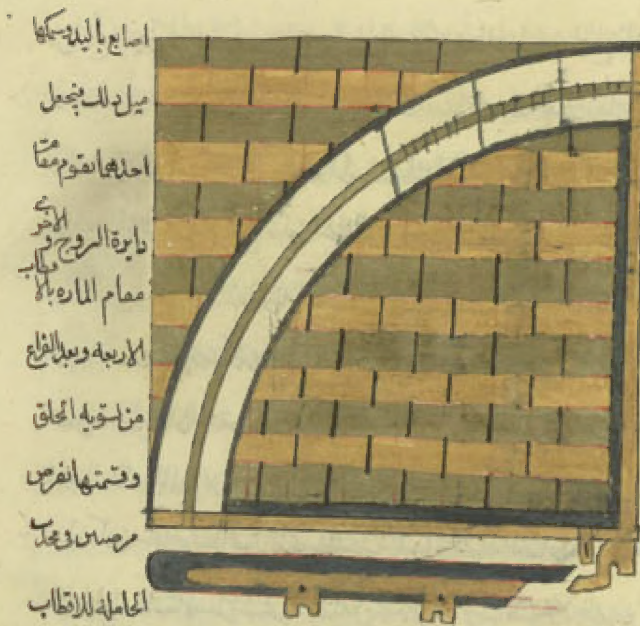 اصابع باليد وسمكها
مثل ذلك فنجعل
احدهما تقوم مقام
دايرة البروج والاخرى
مقام الماره بالاقطاب
الاربعه وبعد الفراغ
من تسويه الحلق
وقسمتها نفرض
فى محدب
الحامله للاقطاب